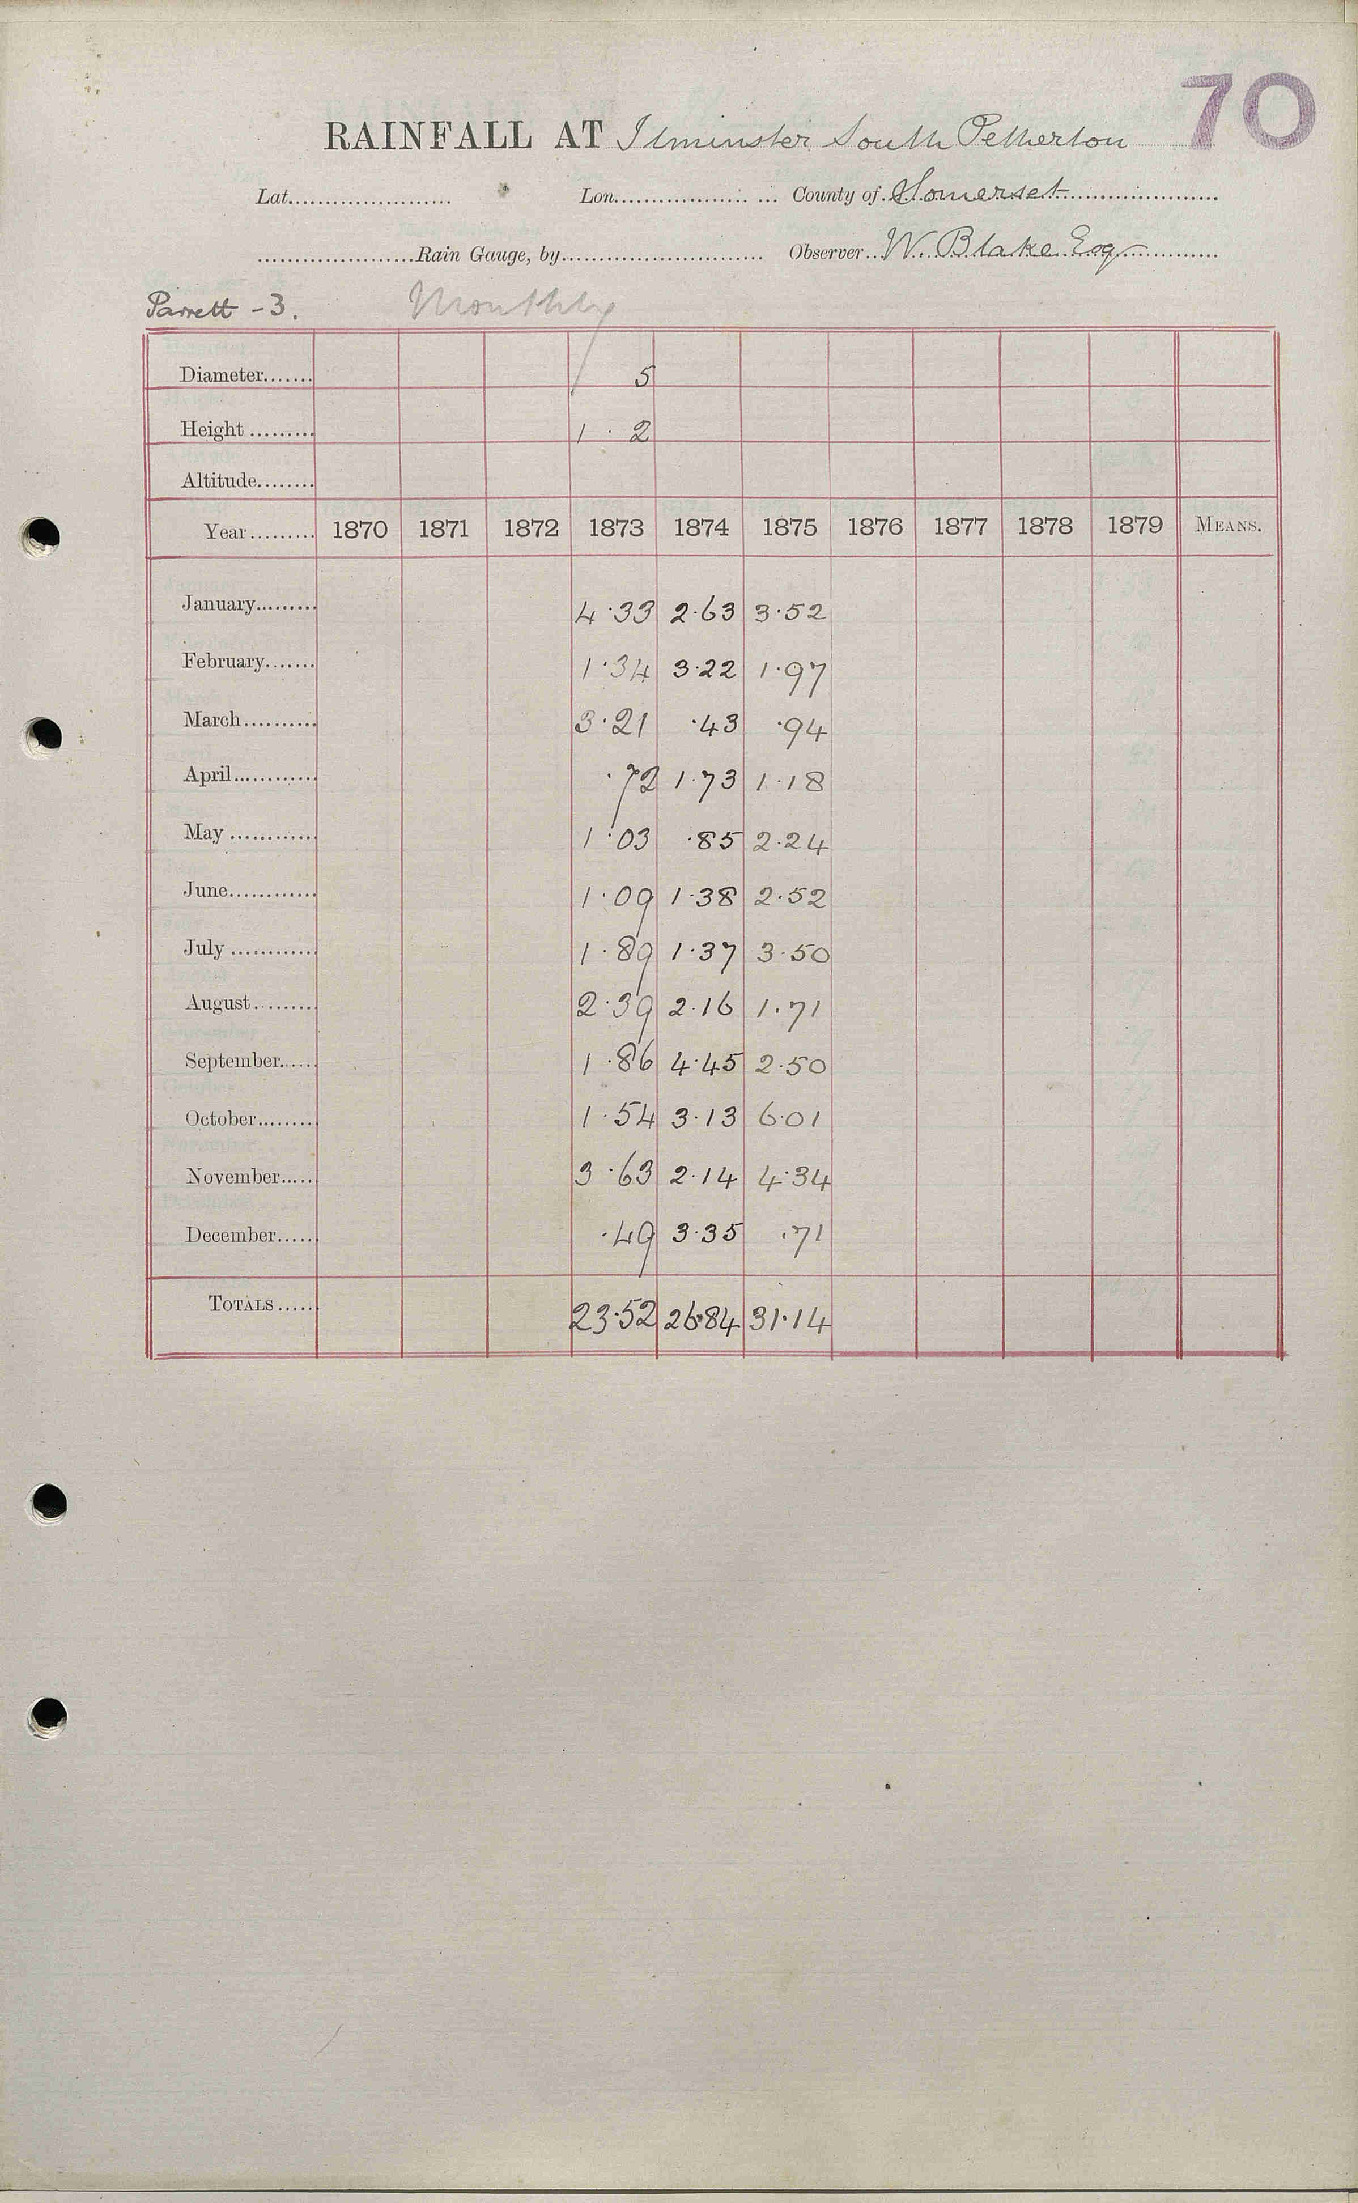 70
RAINFALL AT Ilminster, South Petherton
Lat. Lon. County of Somerset
Rain Gauge, by Observer W. Blake Esq
Parrett - 3. Monthly
Diameter 5
Height 1 . 2
Altitude
Year 1870 1871 1872 1873 1874 1875 1876 1877 1878 1879 MEANS.
January 4.33 2.63 3.52
February 1.34 3.22 1.97
March 3.21 .43 .94
April .72 1.73 1.18
May 1.03 .85 2.24
June 1.09 1.38 2.52
July 1.89 1.37 3.50
August 2.39 2.16 1.71
September 1.86 4.45 2.50
October 1.54 3.13 6.01
November 3.63 2.14 4.34
December .49 3.35 .71
TOTALS 23.52 26.84 31.14